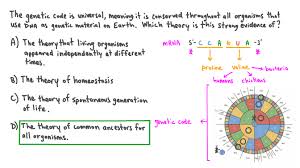 The genetic code is universal, meaning it is conserved throughout all organisms that
use DNA as genetic material on Earth. Which theory is this strong evidence of?
A) The theory that living organisms
appeared independently at different
times.
B) The theory of homeostasis
C) The theory of spontaneous generation
of life.
D) The theory of common ancestors for
all organisms.
mRNA 5'-C C A G U A-3'
proline valine
bacteria
humans chickens
genetic code